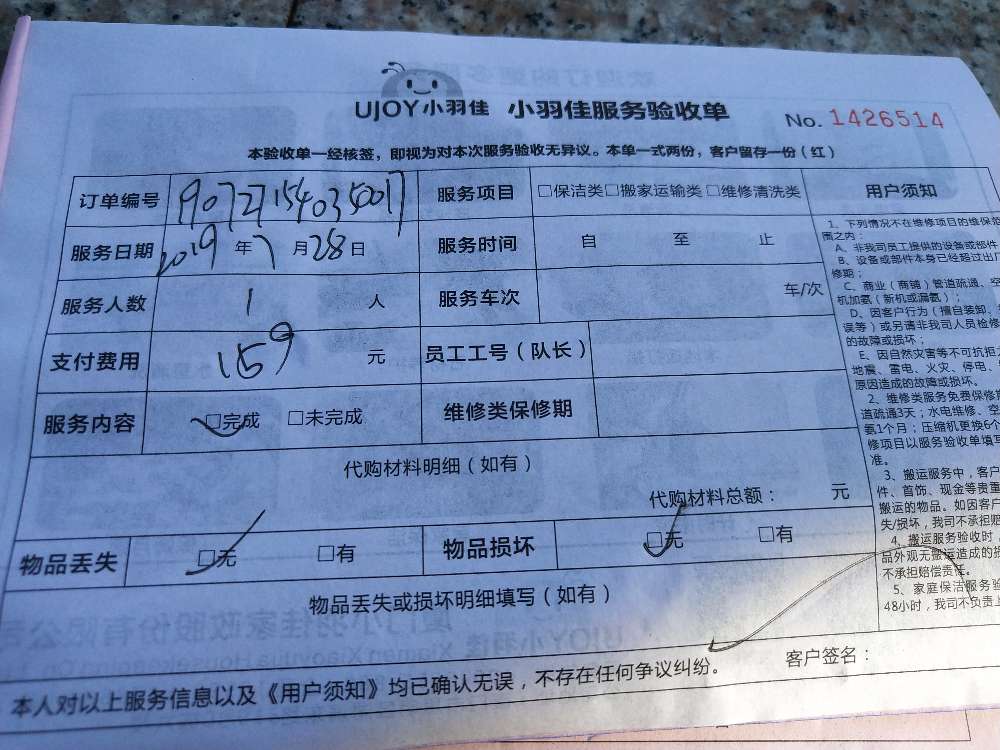 UJOY小羽佳 小羽佳服务验收单 No. 1426514
本验收单一经核签，即视为对本次服务验收无异议。本单一式两份，客户留存一份（红）
订单编号 1907271540354017 服务项目 □保洁类□搬家运输类 □维修清洗类
服务日期 2019 年 7 月 28 日 服务时间 自 至 止
服务人数 1 人 服务车次 车/次
支付费用 159 元 员工工号（队长）
服务内容 □完成 □未完成 维修类保修期
代购材料明细（如有）
代购材料总额： 元
物品丢失 □无 □有 物品损坏 □无 □有
物品丢失或损坏明细填写（如有）
客户签名：
本人对以上服务信息以及《用户须知》均已确认无误，不存在任何争议纠纷。
用户须知
1、下列情况不在维修项目的维保范
围之内：
A、非我司员工提供的设备或部件
B、设备或部件本身已经超过出厂
修期；
C、商业（商铺）管道疏通、空
机加氨（新机或漏氨）；
D、因客户行为（擅自装卸、
误等）或另请非我司人员检修
的故障或损坏；
E、因自然灾害等不可抗拒
地震、雷电、火灾、停电、
原因造成的故障或损坏。
2、维修类服务免费保修期
道疏通3天；水电维修、空
氨1个月；压缩机更换6个
修项目以服务验收单填写
准。
3、搬运服务中，客户
件、首饰、现金等贵重
搬运的物品。如因客户
失/损坏，我司不承担赔
4、搬运服务验收时，
品外观无搬运造成的损
不承担赔偿责任。
5、家庭保洁服务验
48小时，我司不负责上